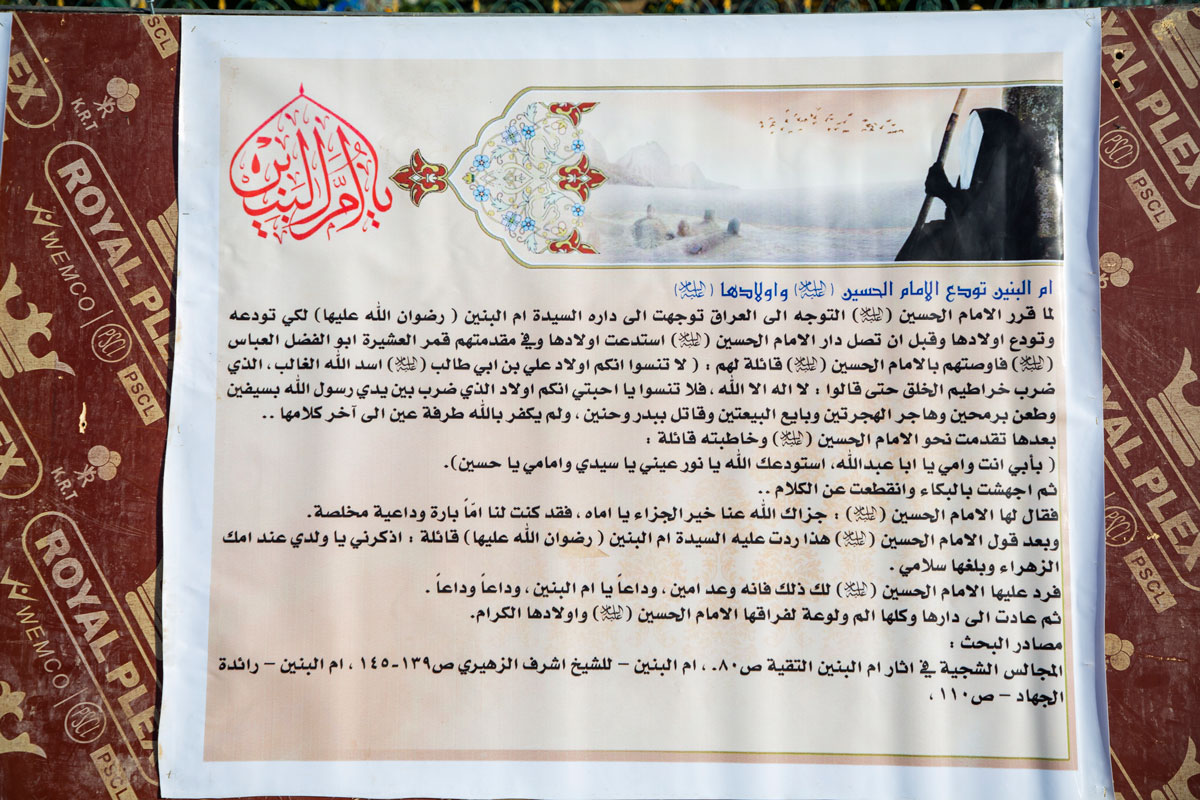 يا أم البنين
ام البنين تودع الامام الحسين (عليه السلام) واولادها (عليه السلام)
لما قرر الامام الحسين (عليه السلام) التوجه الى العراق توجهت الى داره السيدة ام البنين ( رضوان الله عليها) لكي تودعه
وتودع اولادها وقبل ان تصل دار الامام الحسين (عليه السلام) استدعت اولادها وفي مقدمتهم قمر العشيرة ابو الفضل العباس
(عليه السلام) فاوصتهم بالامام الحسين (عليه السلام) قائلة لهم : ( لا تنسوا انكم اولاد علي بن ابي طالب (عليه السلام) اسد الله الغالب ، الذي
ضرب خراطيم الخلق حتى قالوا : لا اله الا الله ، فلا تنسوا يا احبتي انكم اولاد الذي ضرب بين يدي رسول الله بسيفين
وطعن برمحين وهاجر الهجرتين وبايع البيعتين وقاتل ببدر وحنين ، ولم يكفر بالله طرفة عين الى آخر كلامها ..
بعدها تقدمت نحو الامام الحسين (عليه السلام) وخاطبته قائلة :
( بأبي انت وامي يا ابا عبدالله، استودعك الله يا نور عيني يا سيدي وامامي يا حسين).
ثم اجهشت بالبكاء وانقطعت عن الكلام ..
فقال لها الامام الحسين (عليه السلام) : جزاك الله عنا خير الجزاء يا اماه ، فقد كنت لنا امّاً بارة وداعية مخلصة.
وبعد قول الامام الحسين (عليه السلام) هذا ردت عليه السيدة ام البنين ( رضوان الله عليها) قائلة : اذكرني يا ولدي عند امك
الزهراء وبلغها سلامي .
فرد عليها الامام الحسين (عليه السلام) لك ذلك فانه وعد امين ، وداعاً يا ام البنين ، وداعاً وداعاً .
ثم عادت الى دارها وكلها الم ولوعة لفراقها الامام الحسين (عليه السلام) واولادها الكرام.
مصادر البحث :
المجالس الشجية في اثار ام البنين التقية ص٨٠. ، ام البنين – للشيخ اشرف الزهيري ص١٣٩-١٤٥ ، ام البنين – رائدة
الجهاد – ص١١٠ ،
ROYAL PLEX
WEMCO
PSCL
K.R.T
ROYAL PLEX
WEMCO
PSCL
K.R.T
ROYAL PLEX
PSCL
ROYAL PLEX
PSCL